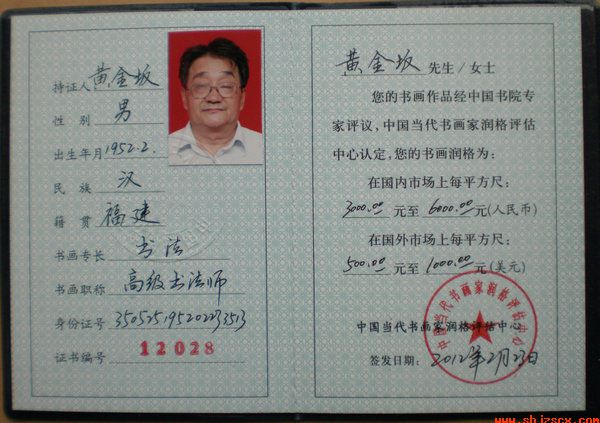 持证人 黄金坂
性 别 男
出生年月 1952.2.
民 族 汉
籍 贯 福建
书画专长 书法
书画职称 高级书法师
身份证号 350525195202233513
证书编号 12028
黄金坂 先生/女士
您的书画作品经中国书院专
家评议,中国当代书画家润格评估
中心认定,您的书画润格为:
在国内市场上每平方尺:
3000.00 元至 6000.00 元(人民币)
在国外市场上每平方尺:
500.00 元至 1000.00 元(美元)
中国当代书画家润格评估中心
中国当代书画家润格评估中心
签发日期: 2012年2月23日
www.shjzscx.com